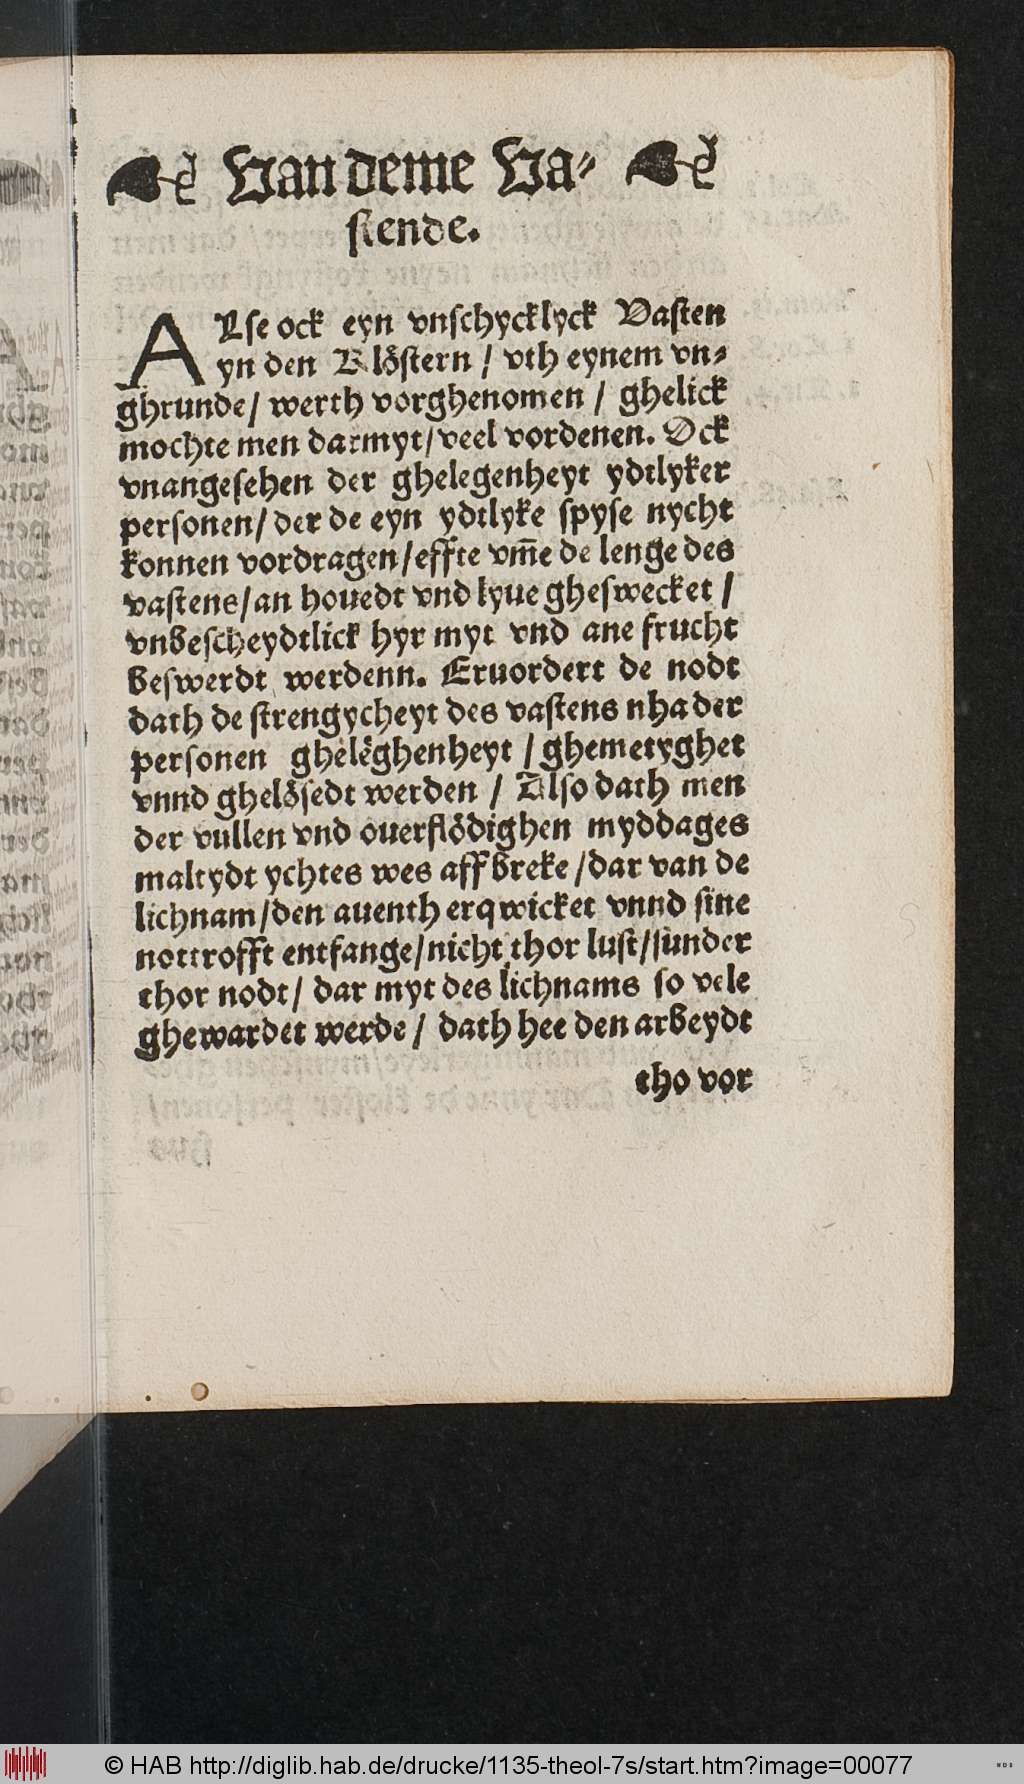 Van deme Va⸗
stende.
ALse ock eyn vnschycklyck Vasten
yn den Klöstern / vth eynem vn⸗
ghrunde / werth vorghenomen / ghelick
mochte men darmyt / veel vordenen. Ock
vnangesehen der ghelegenheyt ydtlyker
personen / der de eyn ydtlyke spyse nycht
konnen vordragen / effte vm̄e de lenge des
vastens / an houedt vnd lyue gheswecket /
vnbescheydtlick hyr myt vnd ane frucht
beswerdt werdenn. Eruordert de nodt
dath de strengycheyt des vastens nha der
personen gheleghenheyt / ghemetyghet
vnnd ghelösedt werden / Also dath men
der vullen vnd ouerflödighen myddages
maltydt ychtes wes aff breke / dar van de
lichnam / den auenth erqwicket vnnd sine
nottrofft entfange / nicht thor lust / sunder
thor nodt / dar myt des lichnams so vele
ghewardet werde / dath hee den arbeydt
tho vor
© HAB http://diglib.hab.de/drucke/1135-theol-7s/start.htm?image=00077